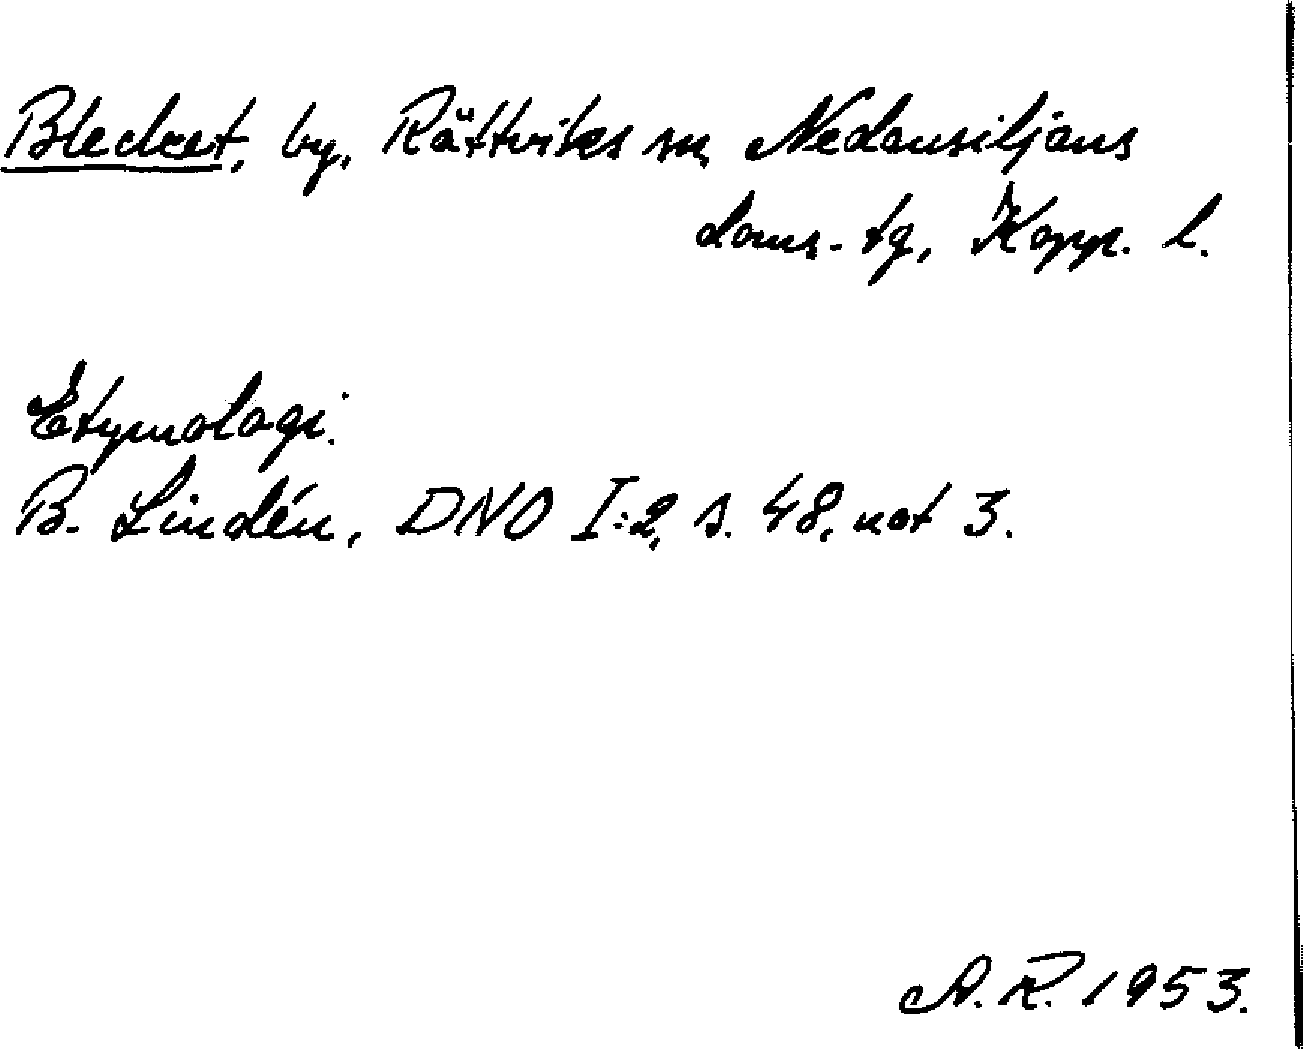 Blecket, by, Rättviks sn, Nedansiljans
doms. tg, Kopp. l.
Etymologi.
B. Lindén, DNO I:2, s. 48, not 3.
A.R. 1953.